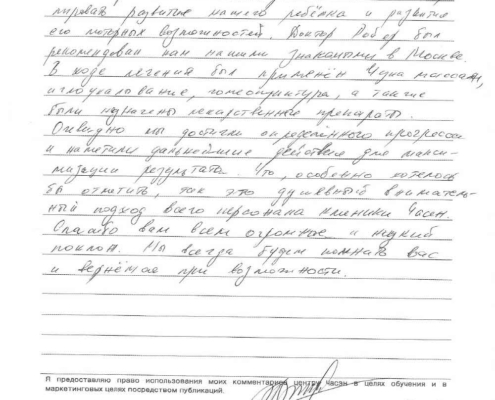 мировать развитие нашего ребёнка и развития
его моторных возможностей. Доктор Робер был
рекомендован нам нашими знакомыми в Москве.
В ходе лечения был применён Чуна массаж,
иглоукалывание, гомеопунктура, а также
были назначены лекарственные препараты.
Очевидно мы достигли определённого прогресса
и наметили дальнейшие действия для макси-
мизации результата. Что, особенно хотелось
бы отметить, так это душевный вниматель-
ный подход всего персонала клиники Часен.
Спасибо вам всем огромное и низкий
поклон. Мы всегда будем помнить вас
и вернёмся при возможности.
Я предоставляю право использования моих комментариев центру Часан в целях обучения и в
маркетинговых целях посредством публикаций.